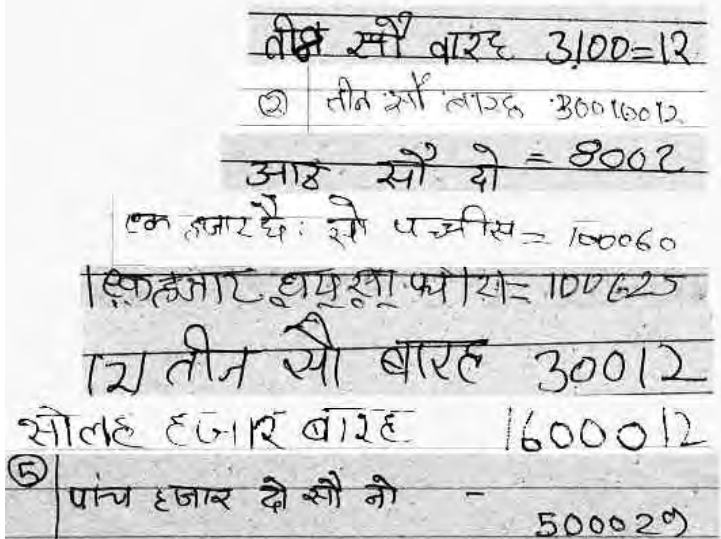 तीन सौ बारह 3,100=12
② तीन सौ बारह 30010012
आठ सौ दो = 8002
एक हजार छै: सौ पच्चीस = 100060
100625
तीन सौ बारह 30012
सोलह हजार बारह 1600012
⑤ पांच हजार दो सौ नो - 500029